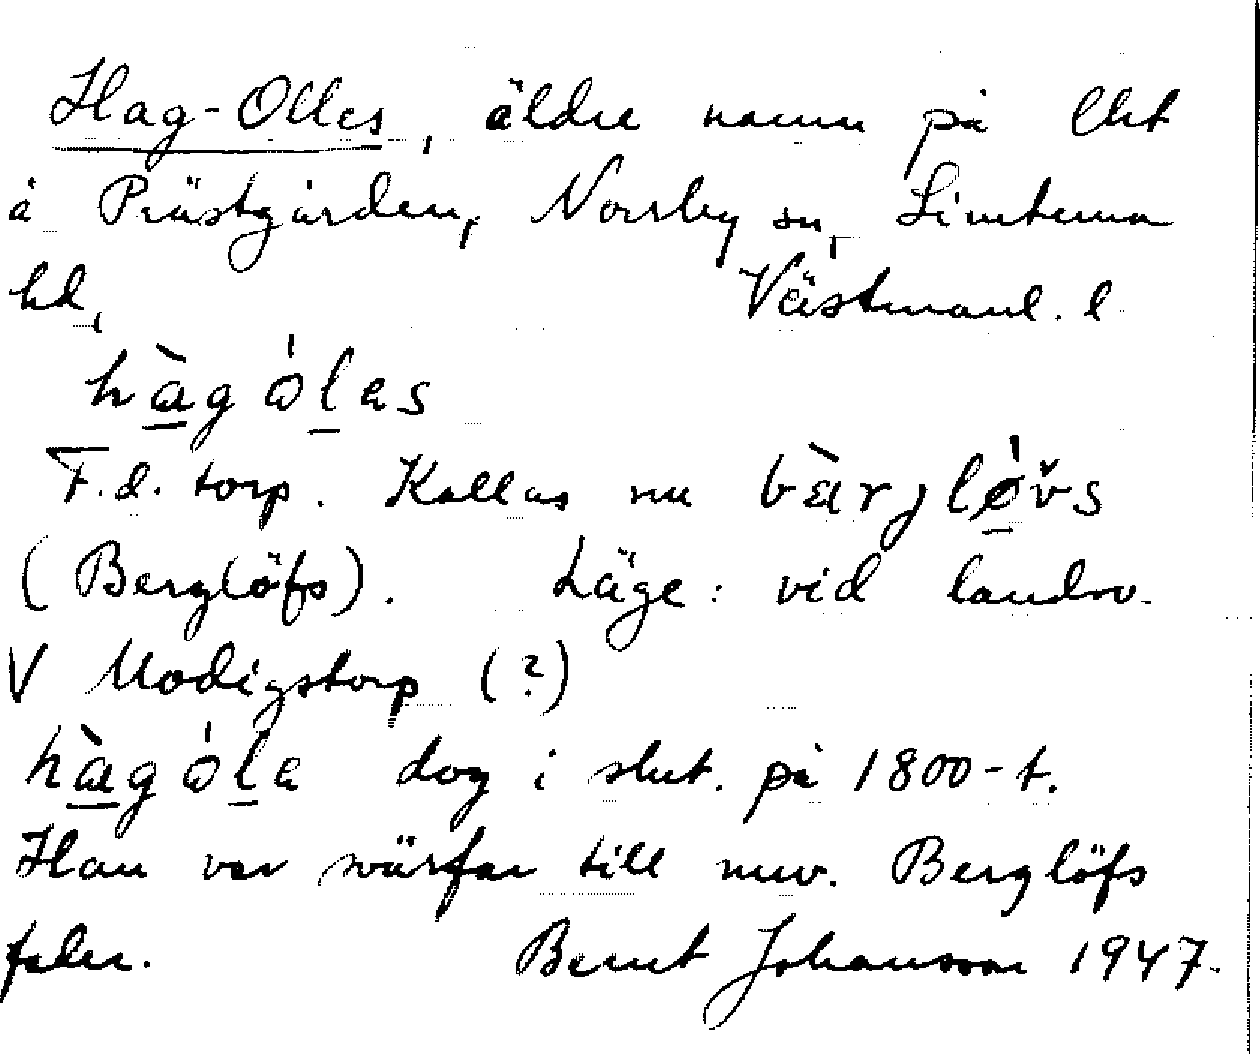 Hag-Olles, äldre namn på lht
å Prästgården, Norrby sn, Simtuna
hd, Västmanl. l.
hàgólas
F.d. torp. Kallas nu bàrjlø̆vs
(Berglöfs). Läge: vid landsv.
V Modigstorp (?)
hàgóla dog i slut. på 1800-t.
Han var svärfar till nuv. Berglöfs
fader. Bernt Johansson 1947.